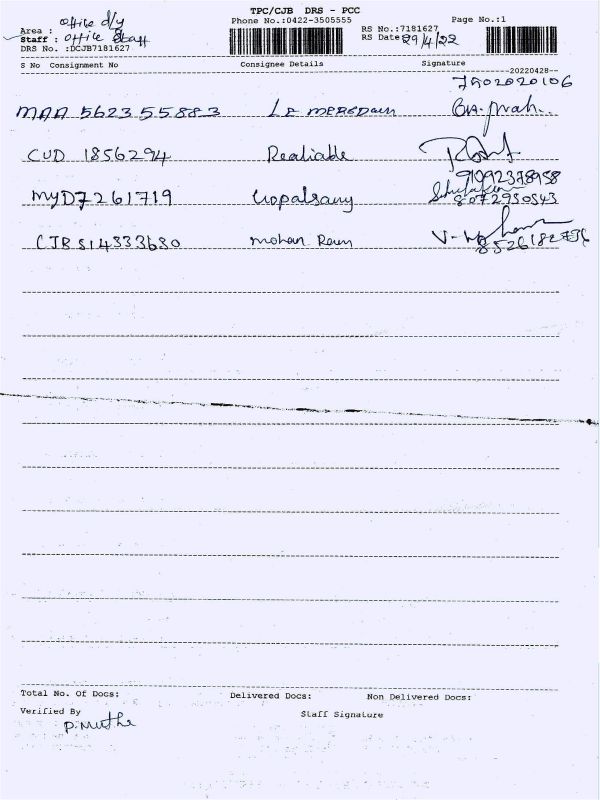 TPC/CJB DRS - PCC
Area : office d/y
Phone No.:0422-3505555
Page No.:1
Staff : office Staff
RS No.:7181627
DRS No. :DCJB7181627
RS Date: 29/4/22
S No Consignment No Consignee Details Signature
--20220428--
7502020106
MAA 562355883 LE MEREDAIN
CUD 1856294 Realiable
91092378958
MYD7261719 Gopalsamy
8072950543
CJB514333680 Mohan Ram
Total No. Of Docs: Delivered Docs: Non Delivered Docs:
Verified By
Staff Signature
P. Muthu